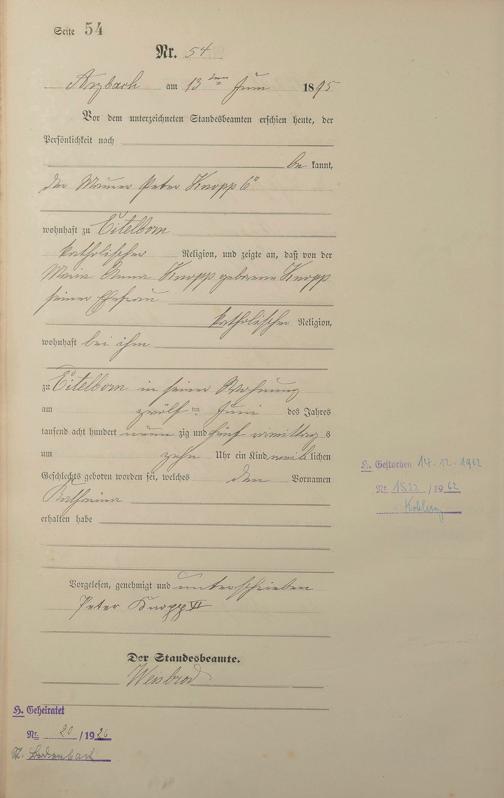 Seite 54
Nr. 54
Arzbach am 13ten Juni 1895
Vor dem unterzeichneten Standesbeamten erschien heute, der
Persönlichkeit nach
be kannt,
der Maurer Peter Knopp 6r
wohnhaft zu Eitelborn
katholischer Religion, und zeigte an, daß von der
Maria Anna Knopp geborene Knopp
seiner Ehefrau
katholischer Religion,
wohnhaft bei ihm
zu Eitelborn in seiner Wohnung
am zwölften Juni des Jahres
tausend acht hundert neun zig und fünf vormittags
um zehn Uhr ein Kind weiblichen
Geschlechts geboren worden sei, welches den Vornamen
Katharina
erhalten habe
Vorgelesen, genehmigt und unterschrieben
Peter Knopp VI
Der Standesbeamte.
Weisbrod
H. Gestorben 14.12.1962
Nr. 1822 /1962
Koblenz
H. Geheiratet
Nr. 20 /1926